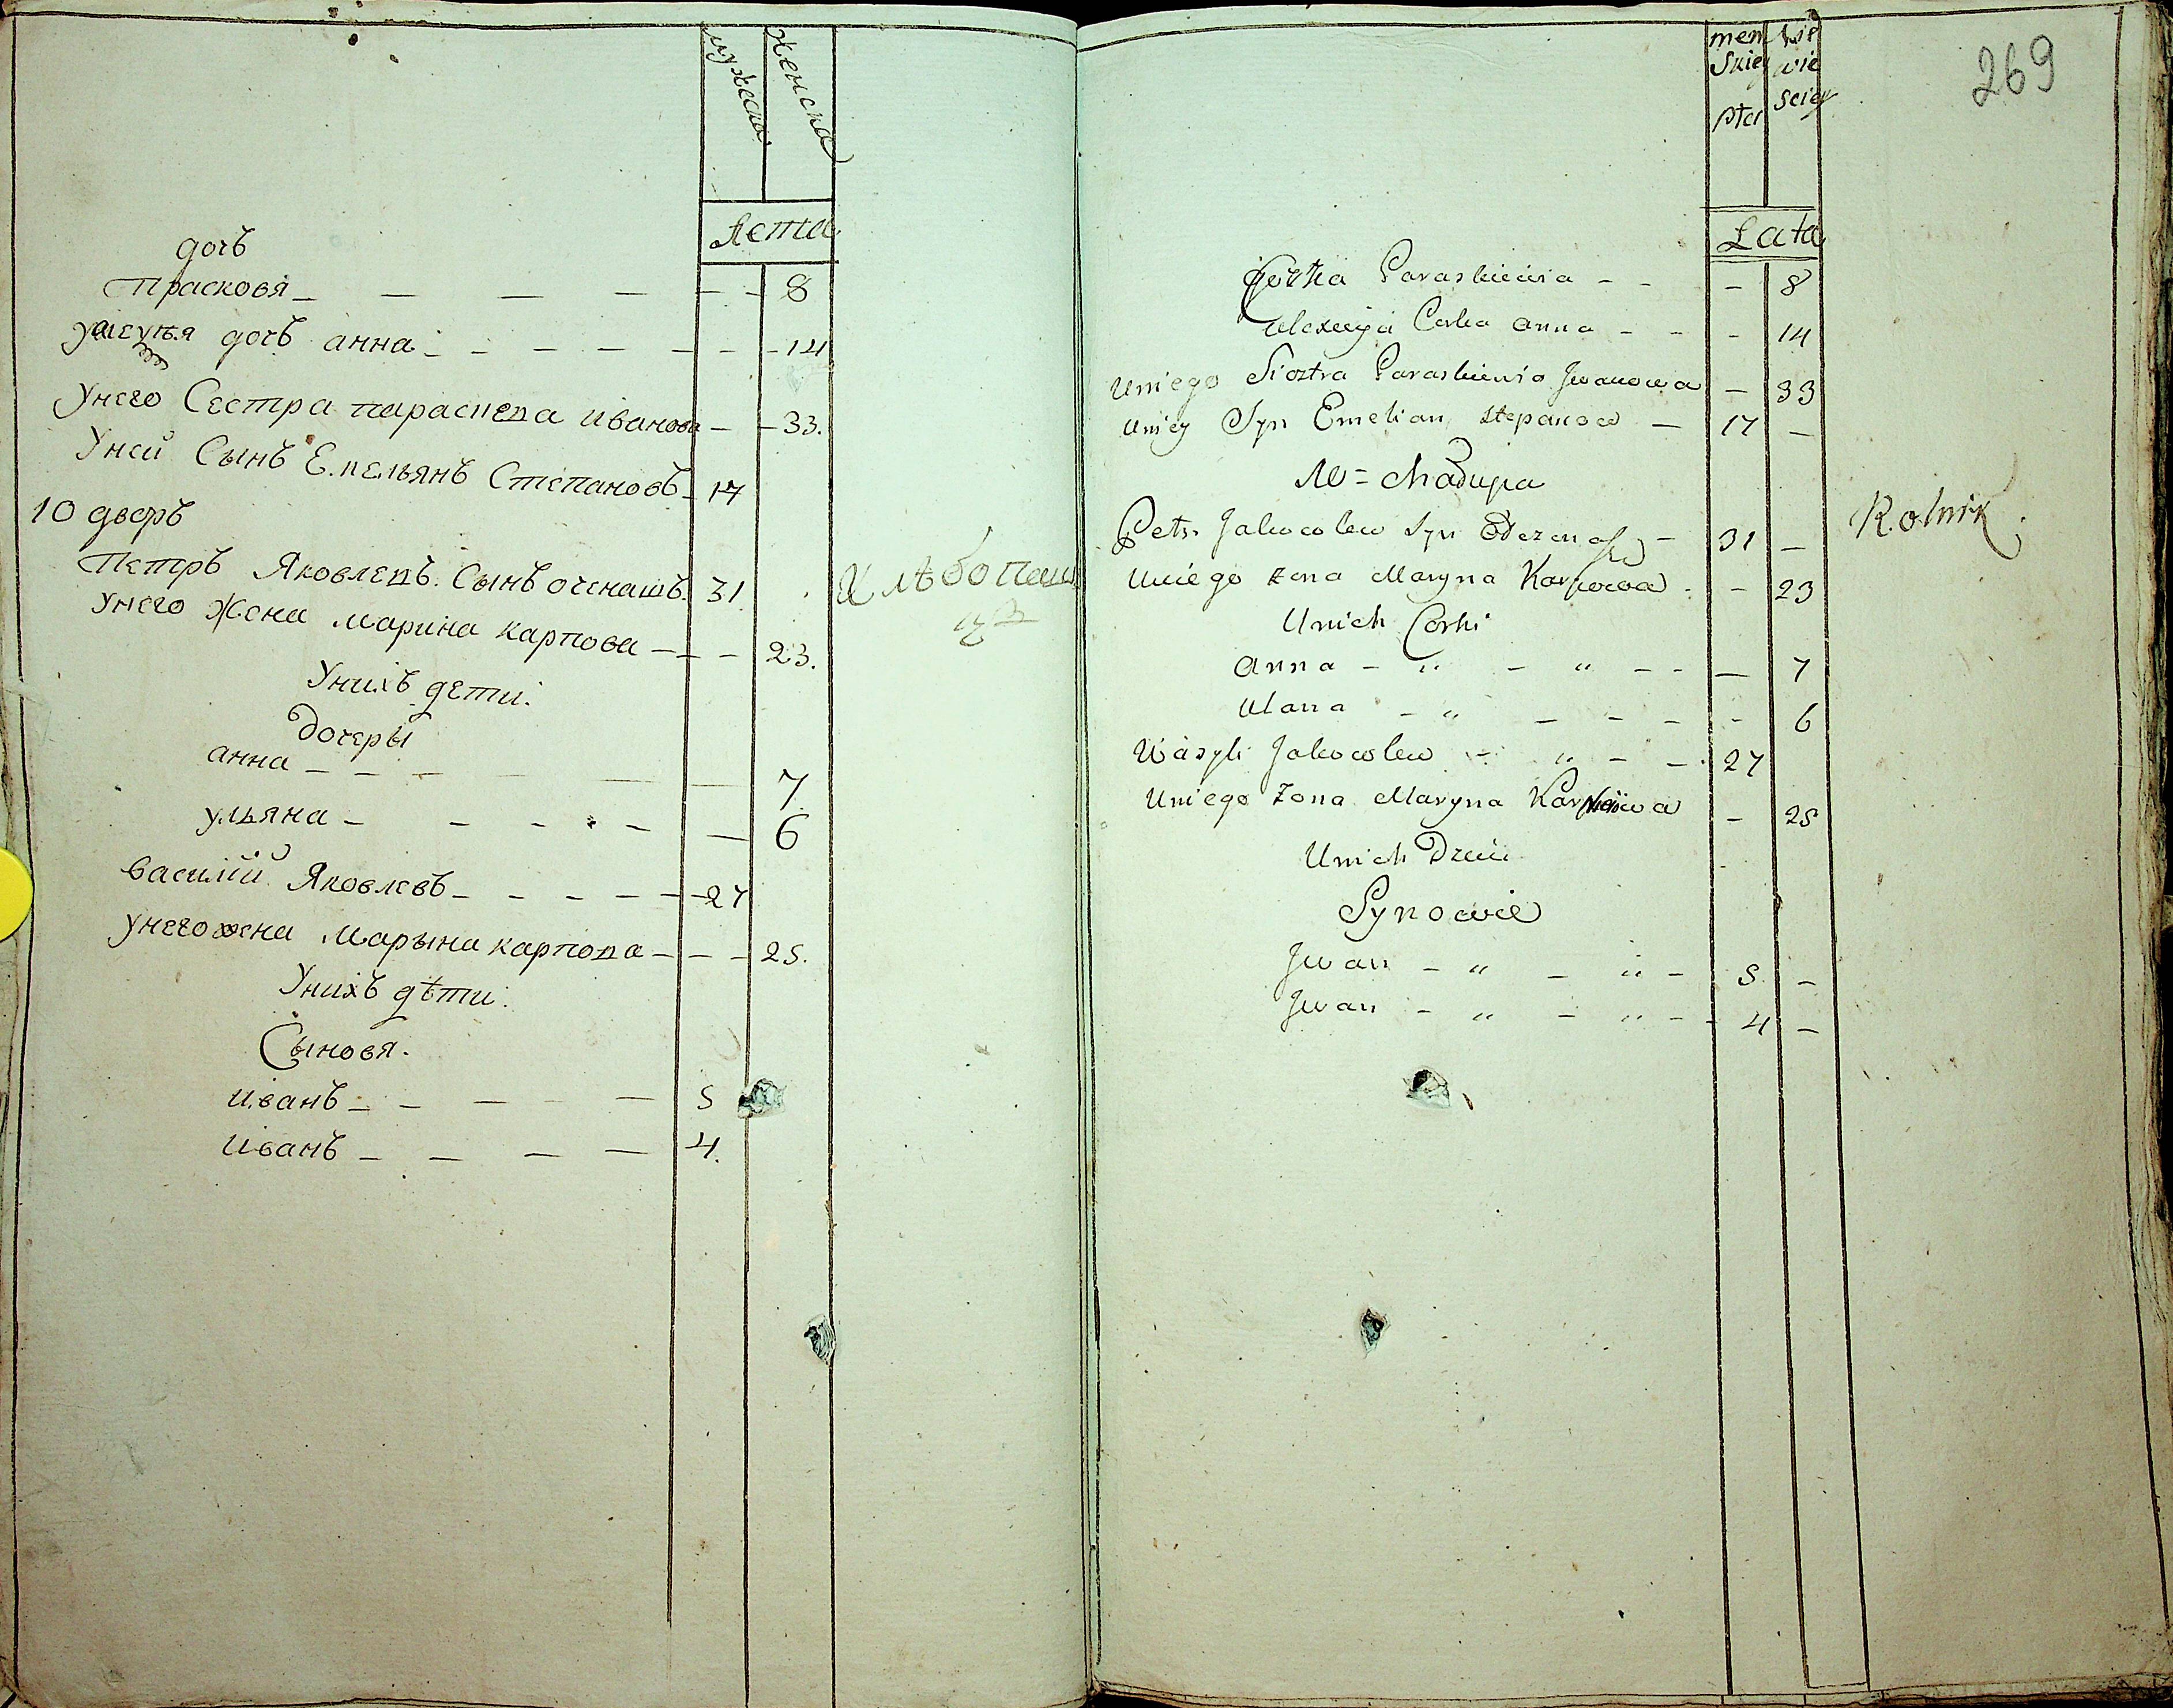 мужеска
женска
Лета
дочь
Прасковя 8
дочь анна 14
Унего Сестра параскева иванова 33.
Уней Сынъ Емельянъ Степановъ 17
10 дворъ
Петръ Яковлевъ Сынъ оченашъ 31.
Хлѣбопашцъ
Унего Жена Марина карпова 23.
Унихъ дети.
Дочеры
анна 7
ульяна 6
василій Яковлевъ 27
Унего жена Марына карпова 25.
Унихъ дѣти.
Сыновя.
иванъ 5
иванъ 4.
269
men skiey płci
bie wie sciey
Lata
Corka Paraskiewia - - - 8
Alexieja Corka anna - - - 14
Uniego Siostra Paraskiewia Jwanowa - 33
Uniey Syn Emelian Stepanow - 17 -
Petr Jakowlew Syn - 31 -
Rolnik.
Uniego Zona Maryna Karpowa - 23
Unich Corki
anna - " - " - - - 7
Ulana - " - - - - 6
Wasyli Jakowlew - " - - 27
Uniego Zona Maryna - 25
Unich Dzieci
Synowie
Jwan - " - " - 5 -
Jwan - " - " - - 4 -